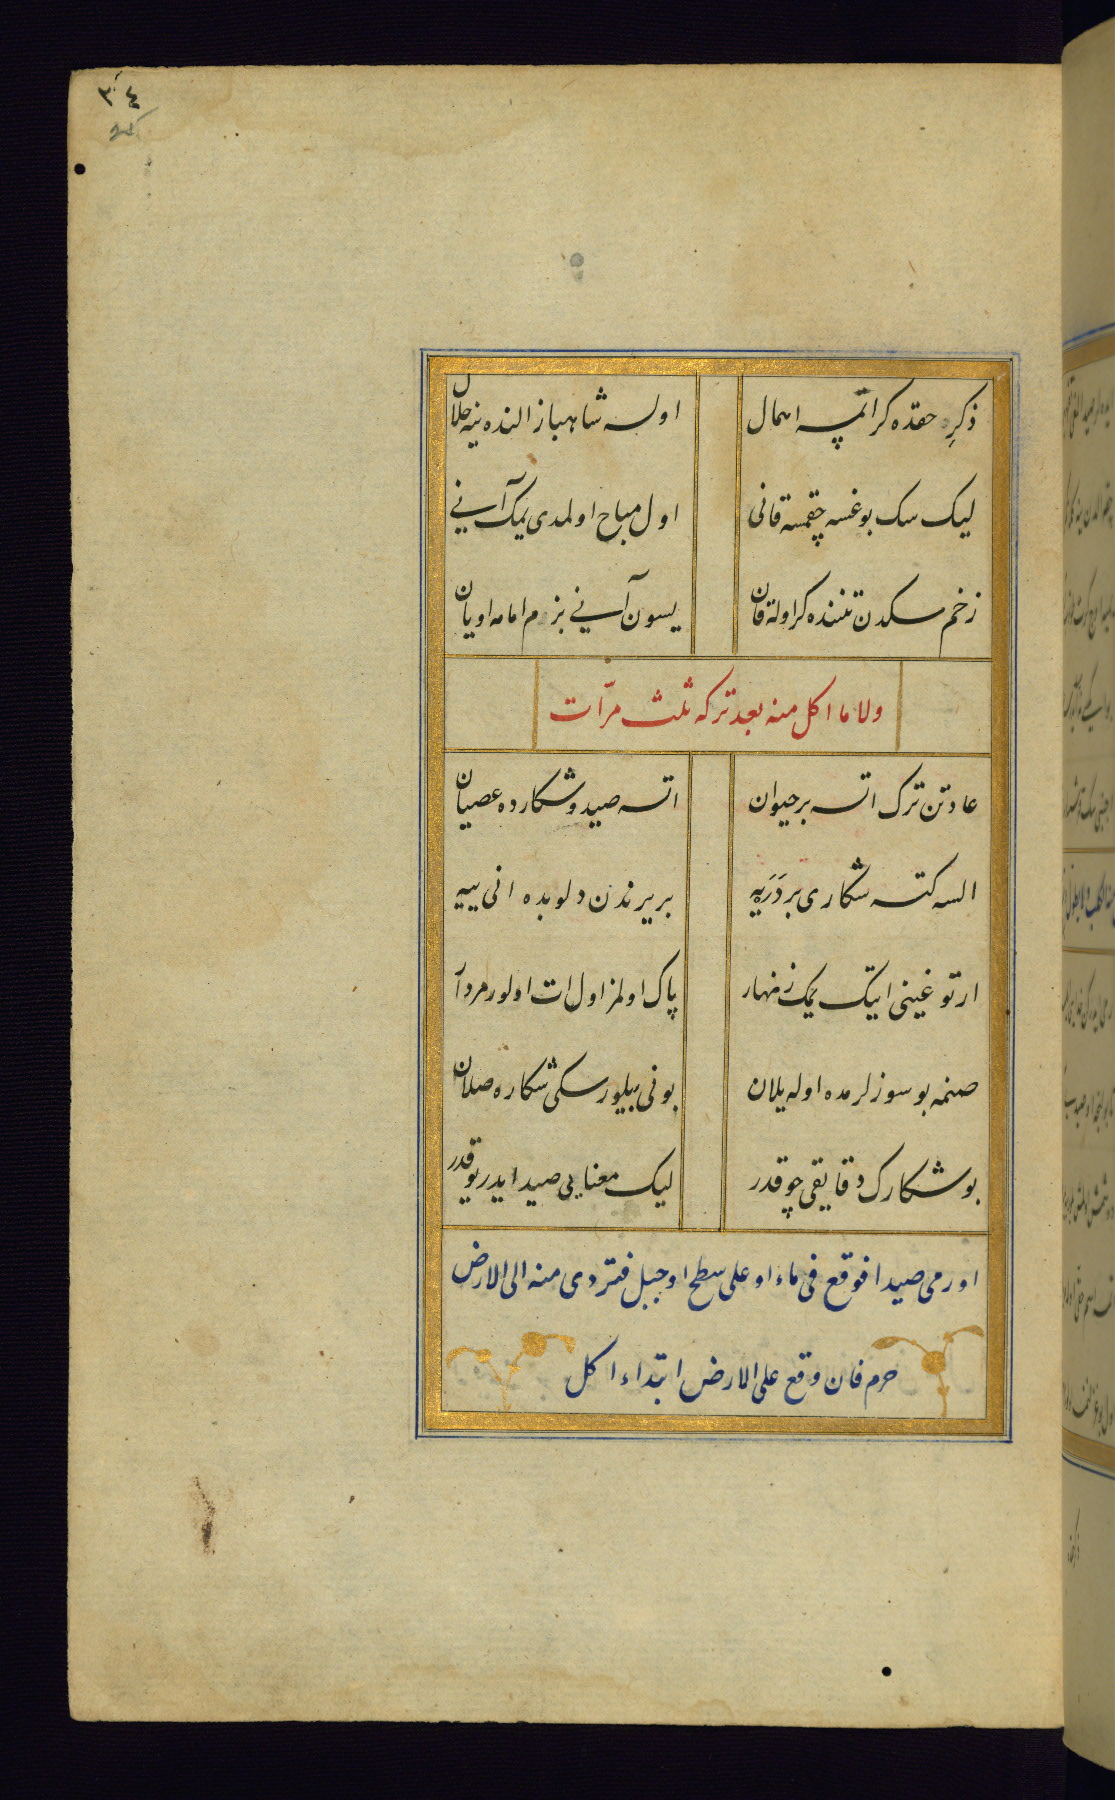 ٣٤
ذكرِ حقده كر اتمیه اهمال اولسه شاهباز النده ینه حلال
لیك سك بوغسه چقمسه قانی اول مباح اولمدی یمك آنی
زخم سكدن تننده كر اوله قان یسون آنی بزم امامه اویان
ولا ما اكل منه بعد تركه ثلث مرّات
عادتن ترك اتسه بر حیوان اتسه صید و شكارده عصیان
السه كتسه شكاری بر دَرَیه بریرندن دلوبده انی ییه
ارتوغینی ایتك یمك زنهار پاك اولمز اول ات اولور مردار
صنمه بو سوزلرمده اوله یلان بونی بیلور سكی شكاره صلان
بو شكارك دقایقی چوقدر لیك معنایی صید ایدر یوقدر
او رمی صیدا فوقع فی ماء او علی سطح او جبل فتردی منه الی الارض
حرم فان وقع علی الارض ابتداء اكل